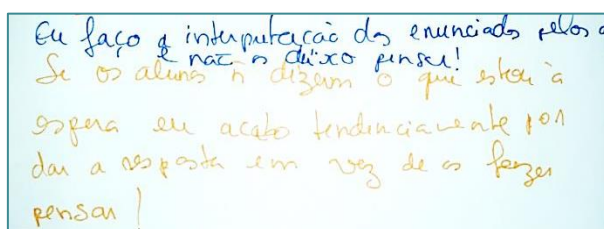 Eu faço a interpretação dos enunciados pelos a
e não os deixo pensar!
Se os alunos ñ dizem o que estou à
espera eu acabo tendencialmente por
dar a resposta em vez de os fazer
pensar!